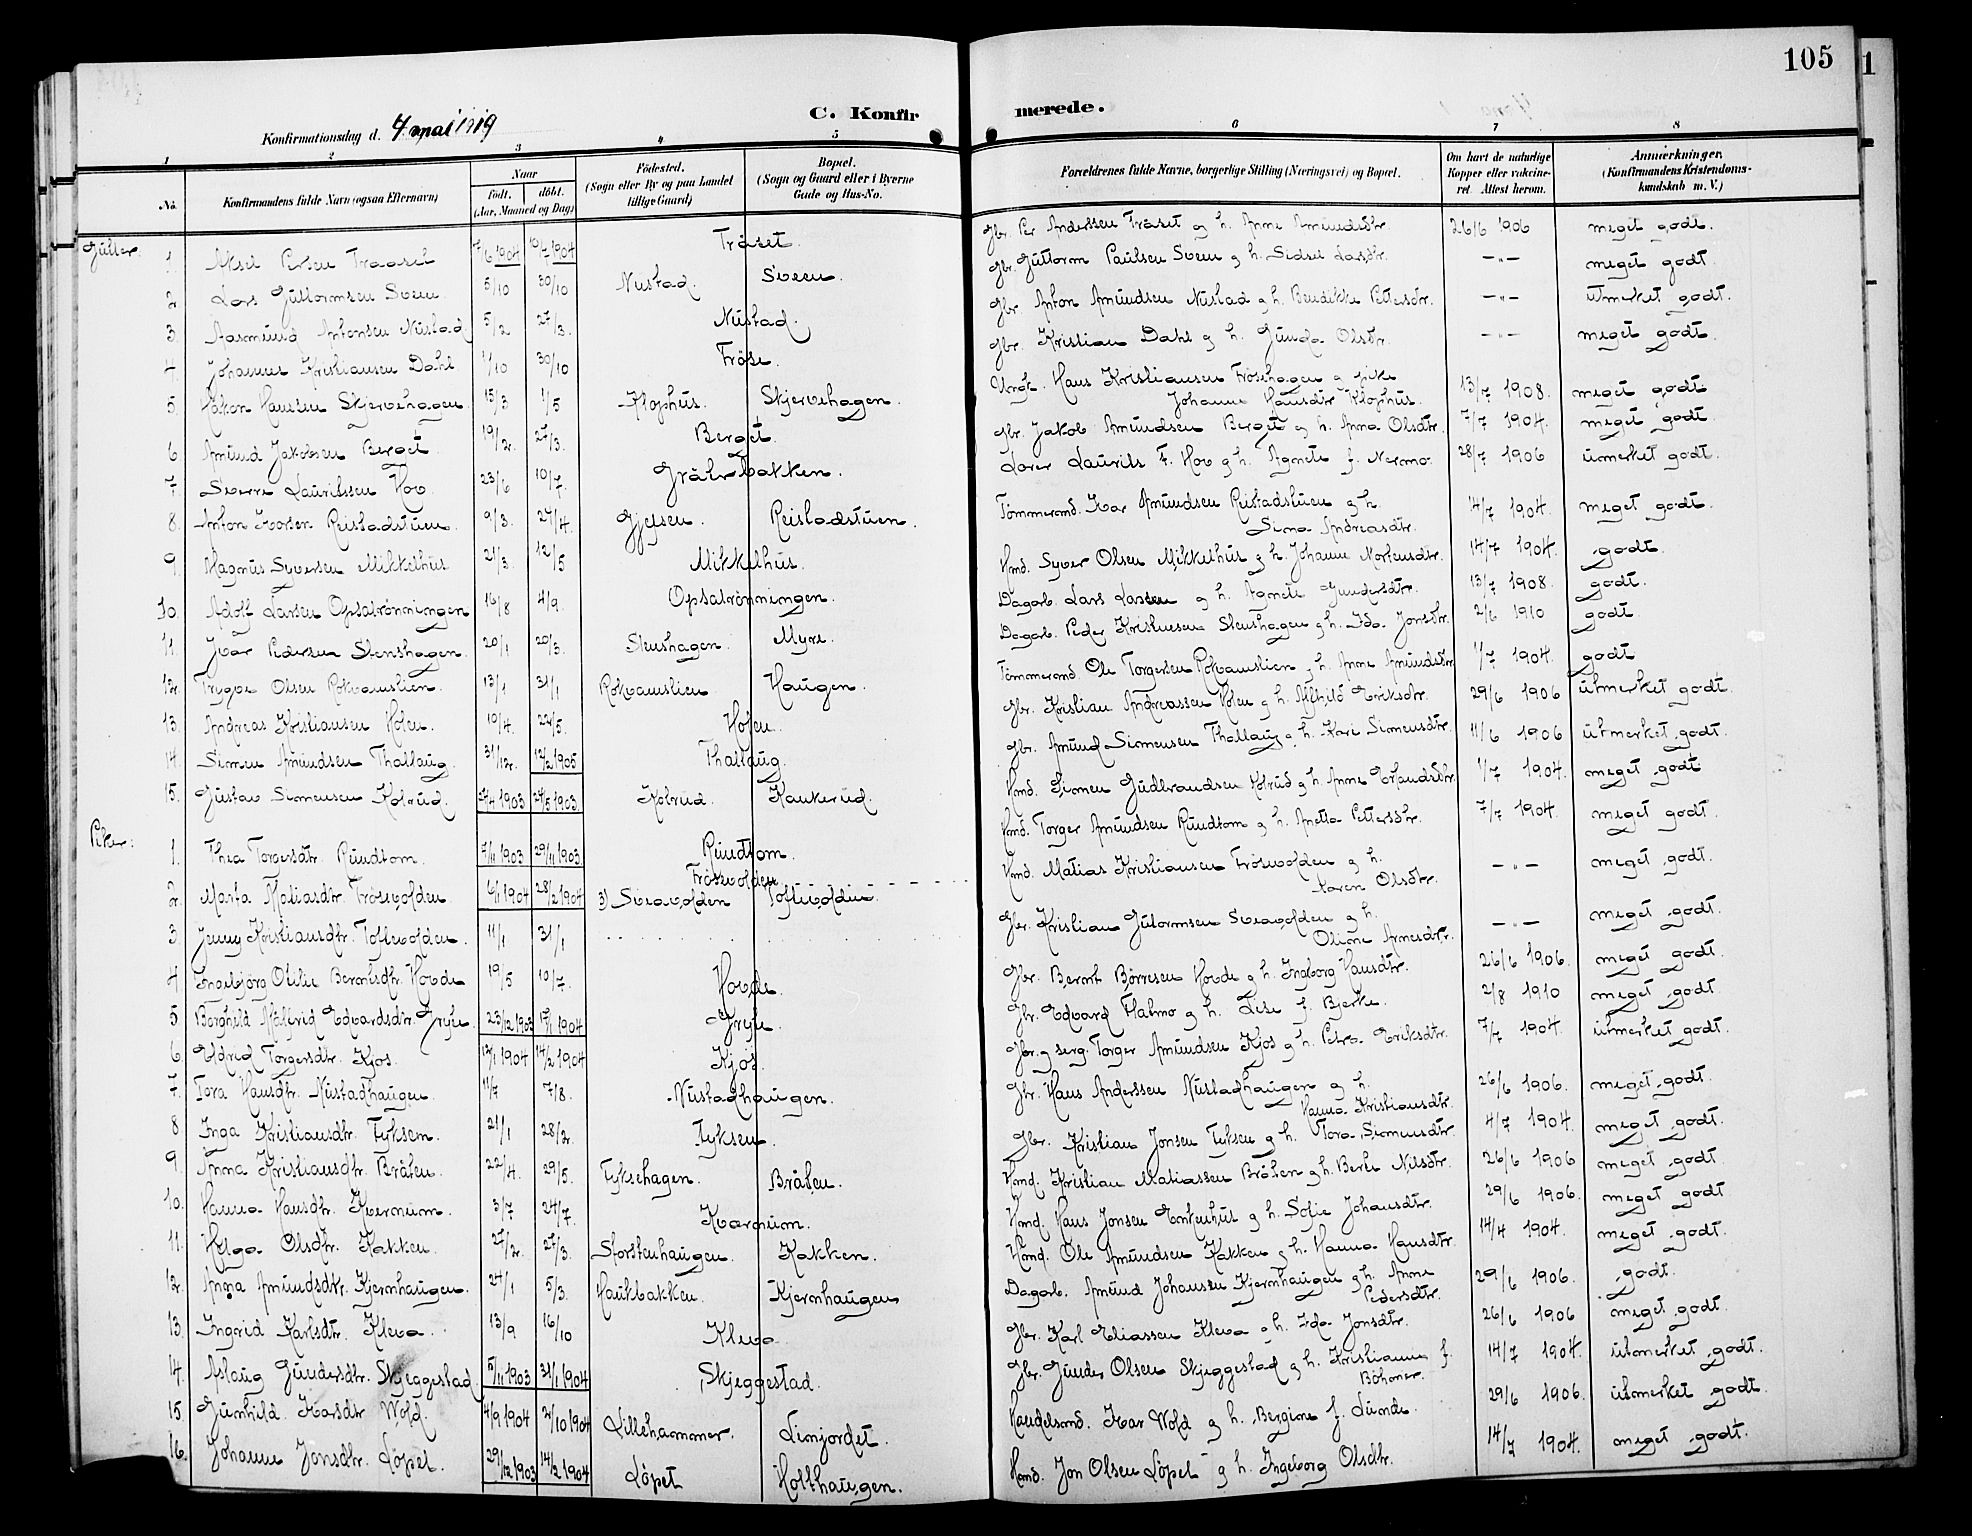 105
C. Konfirmerede.
Konfirmationsdag d. 4 mai 1919
1 2 3 4 5 6 7 8
No. Konfirmandens fulde Navn (ogsaa Efternavn) Naar födt. döbt. (Aar, Maaned og Dag) Födested. (Sogn eller By og paa Landet tillige Gaard) Bopæl. (Sogn og Gaard eller i Byerne Gade og Hus-No. Forældrenes fulde Navne, borgerlige Stilling (Næringsvei) og Bopæl. Om havt de naturlige Kopper eller vaccineret. Attest herom. Anmærkninger. (Konfirmandens Kristendomskundskab m. V.)
Gutter:
1. Aksel Persen Traaset 7/6 1904 10/7 1904 Tråset. Gbr. Per Anderssen Tråset og h. Anne Amundsdtr. 26/6 1906 meget godt.
2. Lars Guttormsen Sveen 5/10 30/10 Nustad. Sveen. Gbr. Guttorm Paulsen Sveen og h. Sidsel Larsdtr. —"— meget godt.
3. Aasmund Antonsen Nustad 5/2 27/3. Nustad. Gbr. Anton Amundsen Nustad og h. Bendikke Pettersdtr. —"— utmerket godt.
4. Johannes Kristiansen Dahl 1/10 30/10 Fröse. Gbr. Kristian Dahl og h. Gunda Olsdtr. —"— meget godt
5. Håkon Hanssen Skjervehagen 15/3 1/5 Klophus. Skjervehagen. Ungk. Hans Kristiansen Frösehagen og pike Johanne Hansdtr Klophus. 13/7 1908. meget godt
6 Amund Jakobsen Berget. 19/2. 27/3. Berget. Gbr. Jakob Amundsen Berget og h. Anna Olsdtr. 7/7 1904. meget godt
7. Sverre Lauritssen Hov. 23/6 10/7. Gråbrobakken. Lærer Laurits F. Hov og h. Agnete f. Nermo. 28/7 1906 utmerket godt.
8. Anton Ivarsen Reistadstuen. 9/3. 27/4. Gjefsen. Reistadstuen. Tömmermd. Ivar Amundsen Reistadstuen og h. Sina Andreasdtr. 14/7 1904. meget godt
9. Magnus Syversen Mikkelhus 21/3. 12/5 Mikkelhus. Hmd. Syver Olsen Mikkelhus og h. Johanne Mortensdtr. 14/7 1904. godt.
10. Adolf Larsen Opsalrönningen 16/8 4/9. Opsalrönningen. Dagarb. Lars Larsen og h. Agnete Gundersdtr. 13/7 1908. godt.
11. Ivar Pedersen Stenshagen. 20/1 20/3. Stenshagen. Myre. Dagarb. Peder Kristensen Stenshagen og h. Ida Jonsdtr. 2/6 1910 godt.
12. Trygve Olsen Rokvamslien. 13/1 31/1 Rokvamslien Haugen. Tömmermd. Ole Torgersen Rokvamslien og h. Anne Amundsdtr 1/7 1904. godt
13. Andreas Kristiansen Holen. 10/4. 22/5. Holen. Gbr. Kristian Andreassen Holen og h. Alfhild Eriksdtr. 29/6 1906 utmerket godt.
14. Simen Amundsen Thallaug. 31/12. 12/2 1905 Thallaug. Gbr. Amund Simensen Thallaug og h. Kari Simensdtr. 11/6 1906 utmerket godt.
15. Gustav Simensen Kolrud. 27/4 1903 24/5 1903. Kolrud. Kankerud. Hmd. Simen Gudbrandsen Kolrud og h. Anne Erlandsdtr. 1/7 1904. meget godt
Piker:
1. Thea Torgersdtr. Rundtom. 7/11 1903 29/11 1903. Rundtom. Hmd. Torger Amundsen Rundtom og h. Anetta Pettersdtr. 7/7 1904. meget godt.
2. Marta Matiasdtr. Frösevolden. 6/1 1904 28/2 1904 Frösevolden Hmd. Matias Kristiansen Frösevolden og h. Karen Olsdtr. —"— meget godt.
3) Sveavolden Toftevolden.
3. Jenny Kristiansdtr. Toftevolden. 11/1 31/1 Gbr. Kristian Gutormsen Sveavolden og h. Oline Arnesdtr. —"— meget godt.
4 Ingebjörg Otilie Berntsdtr. Hovde 19/5 10/7. Hovde. Gbr. Bernt Börresen Hovde og h. Ingeborg Hansdtr. 26/6 1906. meget godt.
5 Borghild Målfrid Edvardsdtr. Gryte. 23/12 1903 17/1 1904 Gryte. Gbr. Edvard Flatmo og h. Lise f. Bjerke. 2/8 1910 meget godt.
6. Eldrid Torgersdtr. Kjos. 12/1 1904 14/2 1904 Kjos. Gbr. og serg. Torger Amundsen Kjos og h. Petra Eriksdtr. 7/7 1904. utmerket godt.
7. Tora Hansdtr. Nustadhaugen. 11/7 7/8. Nustadhaugen. Gbr. Hans Anderssen Nustadhaugen og h. Hanna Kristiansdtr. 26/6 1906. meget godt.
8 Inga Kristiansdtr. Fyksen. 21/1 28/2. Fyksen. Gbr. Kristian Jonsen Fyksen og h. Tora Simensdtr. 4/7 1904. meget godt.
9. Anna Kristiansdtr. Bråten. 22/4. 29/5. Fyksehagen. Bråten. Hmd. Kristian Matiassen Bråten og h. Berte Nilsdtr. 26/6 1906 meget godt.
10. Hanna Hansdtr. Kvernum. 3/7 24/7. Kvernum. Hmd. Hans Jonsen Enkenhus og h. Sofie Johansdtr. 29/6 1906. meget godt
11. Helga Olsdtr. Kakken. 27/2. 27/3. Storstenhaugen. Kakken. Hmd. Ole Amundsen Kakken og h. Hanna Hansdtr 14/4 1904. meget godt.
12. Anna Amundsdtr. Kjernhaugen. 24/1 5/3. Haukbakken. Kjernhaugen Dagarb. Amund Johansen Kjernhaugen og h. Anne Pedersdtr. 29/6 1906. godt.
13. Ingrid Karlsdtr. Kleva. 13/9 16/10 Kleva. Gbr. Karl Eliassen Kleva og h. Ida Jonsdtr. 26/6 1906 meget godt.
14. Aslaug Gundersdtr. Skjeggestad 5/11 1903 31/1 1904 Skjeggestad. Gbr. Gunder Olsen Skjeggestad og h. Kristianne f. Böhmer. 14/7 1904. utmerket godt.
15. Gunhild Ivarsdtr Wold. 4/9 1904 2/10 1904 Lillehammer. Limjordet. Handelsmd. Ivar Wold og h. Bergine f. Lunde. 29/6 1906. utmerket godt.
16. Johanne Jonsdtr. Löpet. 29/12 1903 14/2 1904 Löpet Holthaugen. Hmd. Jon Olsen Löpet og h. Ingeborg Olsdtr. 14/7 1904. meget godt.